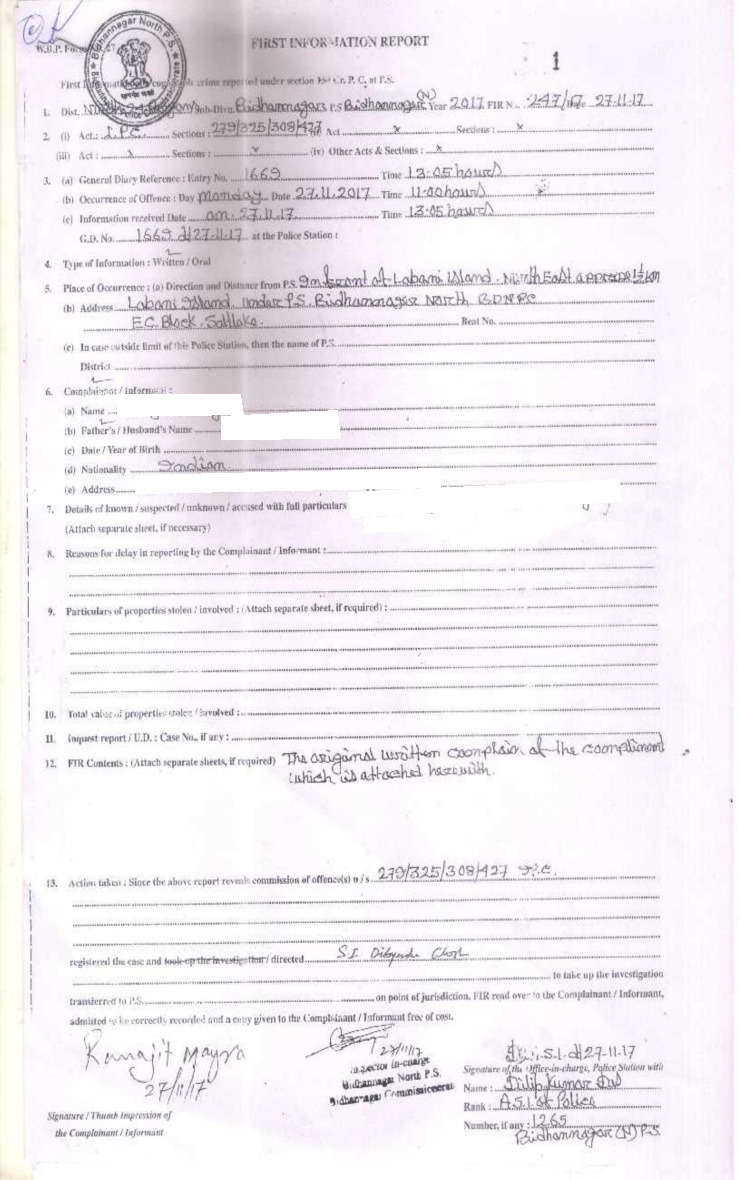 W.B.P. Form
Bidhannagar North P.S.
FIRST INFORMATION REPORT
1
First Information of cognizable crime reported under section 154 Cr. P. C. at P.S.
1. Dist. Sub-Divn. Bidhannagar P.S Bidhannagar (N) Year 2017 FIR No. 247/17 Date 27.11.17
2. (i) Act.: I.P.C. Sections : 279/325/308/427 Act x Sections : x
(iii) Act : x Sections : x (iv) Other Acts & Sections : x
3. (a) General Diary Reference : Entry No. 1669 Time 13:05 hours
(b) Occurrence of Offence : Day Monday Date 27.11.2017 Time 11.00 hours
(c) Information received Date on 27.11.17 Time 13.05 hours
G.D. No. 1669 dt 27.11.17 at the Police Station :
4. Type of Information : Written / Oral
5. Place of Occurrence : (a) Direction and Distance from P.S. In front of Labani Island. North East approx 1½ km
(b) Address Labani Island. Under P.S. Bidhannagar North BDNPC
E.C. Block. Saltlake. Beat No.
(c) In case outside limit of this Police Station, then the name of P.S.
District
6. Complainant / informant :
(a) Name
(b) Father's / Husband's Name
(c) Date / Year of Birth
(d) Nationality Indian
(e) Address
7. Details of known / suspected / unknown / accused with full particulars
(Attach separate sheet, if necessary)
8. Reasons for delay in reporting by the Complainant / Informant :
9. Particulars of properties stolen / involved : (Attach separate sheet, if required) :
10. Total value of properties stolen / involved :
11. Inquest report / U.D. : Case No., if any :
12. FIR Contents : (Attach separate sheets, if required) The original written complain of the compliment
which is attached herewith.
13. Action taken : Since the above report reveals commission of offence(s) u / s 279/325/308/427 I.P.C.
registered the case and took up the investigation / directed S.I Dibyendu Ghosh
to take up the investigation
transferred to P.S. on point of jurisdiction. FIR read over to the Complainant / Informant,
admitted to be correctly recorded and a copy given to the Complainant / Informant free of cost.
Ranajit Mayra
27/11/17
Signature / Thumb Impression of
the Complainant / Informant
27/11/17
Inspector in-charge
Bidhannagar North P.S.
Bidhannagar Commissionerate
A.S.I. dt 27.11.17
Signature of the Office-in-charge, Police Station with
Name : Dilip Kumar Das
Rank : A.S.I. of Police
Number, if any : 1265
Bidhannagar (N) P.S.